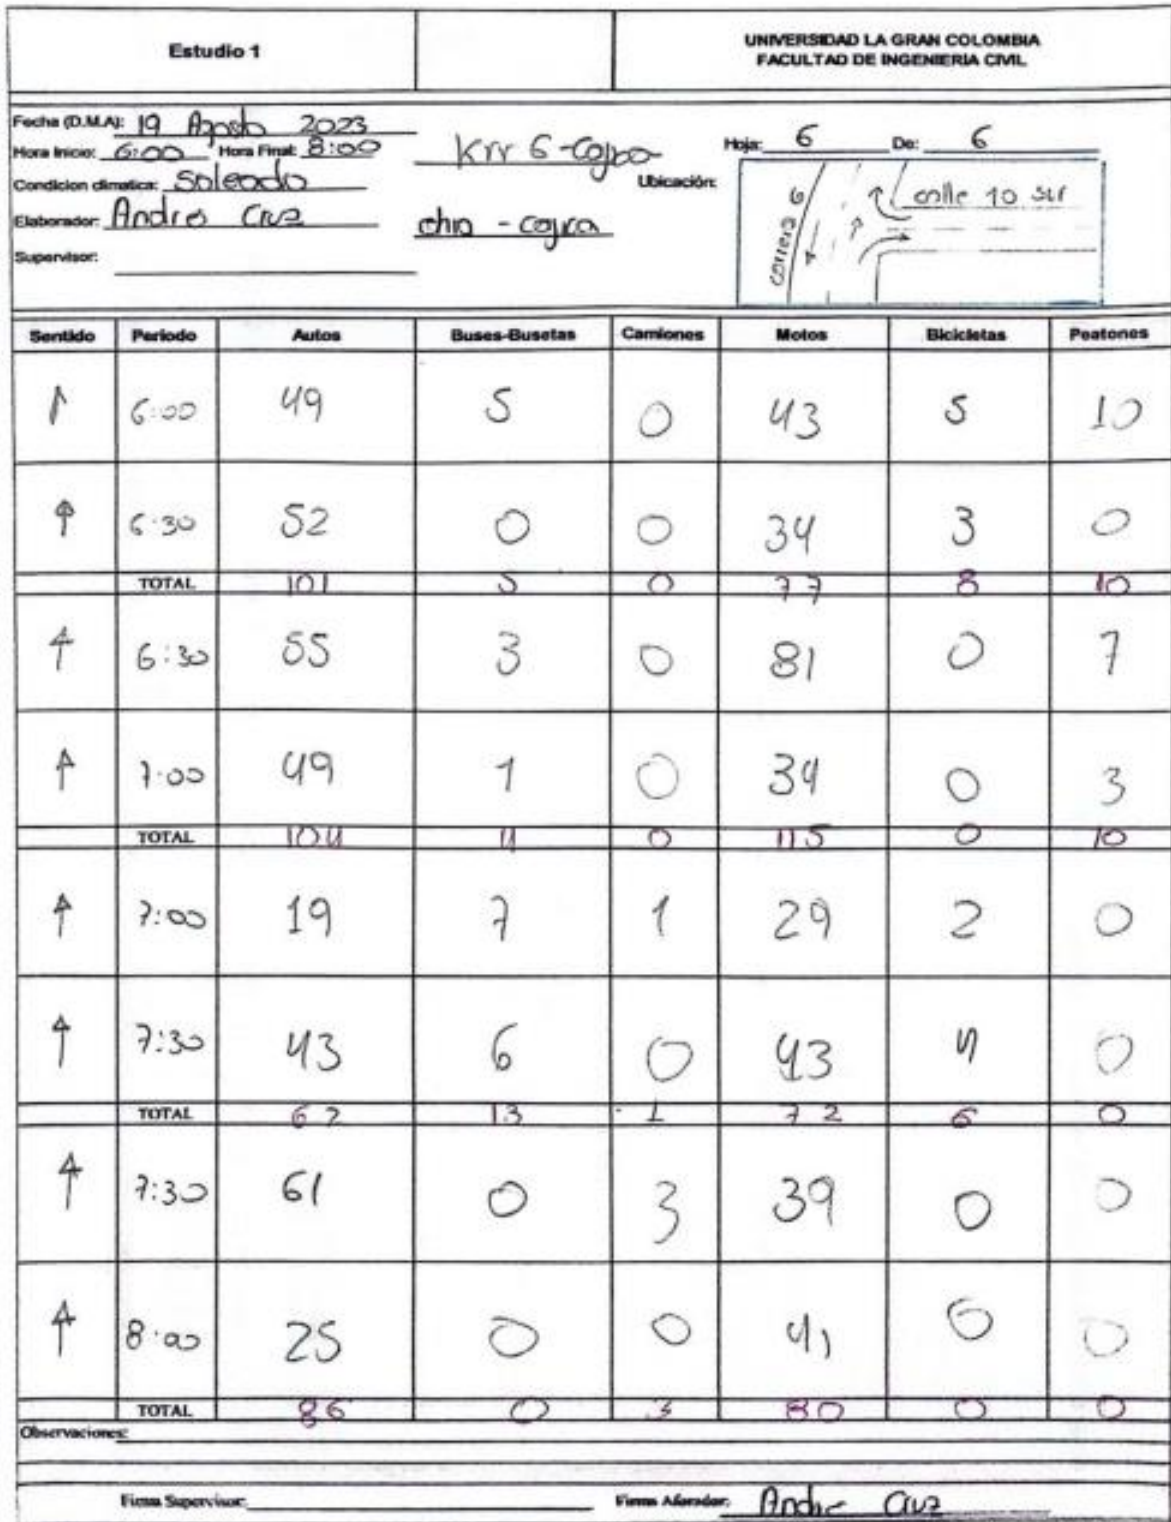 Estudio 1
UNIVERSIDAD LA GRAN COLOMBIA
FACULTAD DE INGENIERIA CIVIL
Fecha (D.M.A): 19 Agosto 2023
Hora Inicio: 6:00 Hora Final: 8:00
Krr 6 - Cajica
Hoja: 6 De: 6
Condicion climatica: Soleado
Ubicación:
Elaborador: Andres Cruz
chia - cajica
Supervisor:
carrera 6
calle 10 sur
Sentido Periodo Autos Buses-Busetas Camiones Motos Bicicletas Peatones
↑ 6:00 49 5 0 43 5 10
↑ 6:30 52 0 0 34 3 0
TOTAL 101 5 0 77 8 10
↑ 6:30 55 3 0 81 0 7
↑ 7:00 49 1 0 34 0 3
TOTAL 104 4 0 115 0 10
↑ 7:00 19 7 1 29 2 0
↑ 7:30 43 6 0 43 4 0
TOTAL 62 13 1 72 6 0
↑ 7:30 61 0 3 39 0 0
↑ 8:00 25 0 0 41 0 0
TOTAL 86 0 3 80 0 0
Observaciones:
Firma Supervisor: Firma Aforador: Andre Cruz